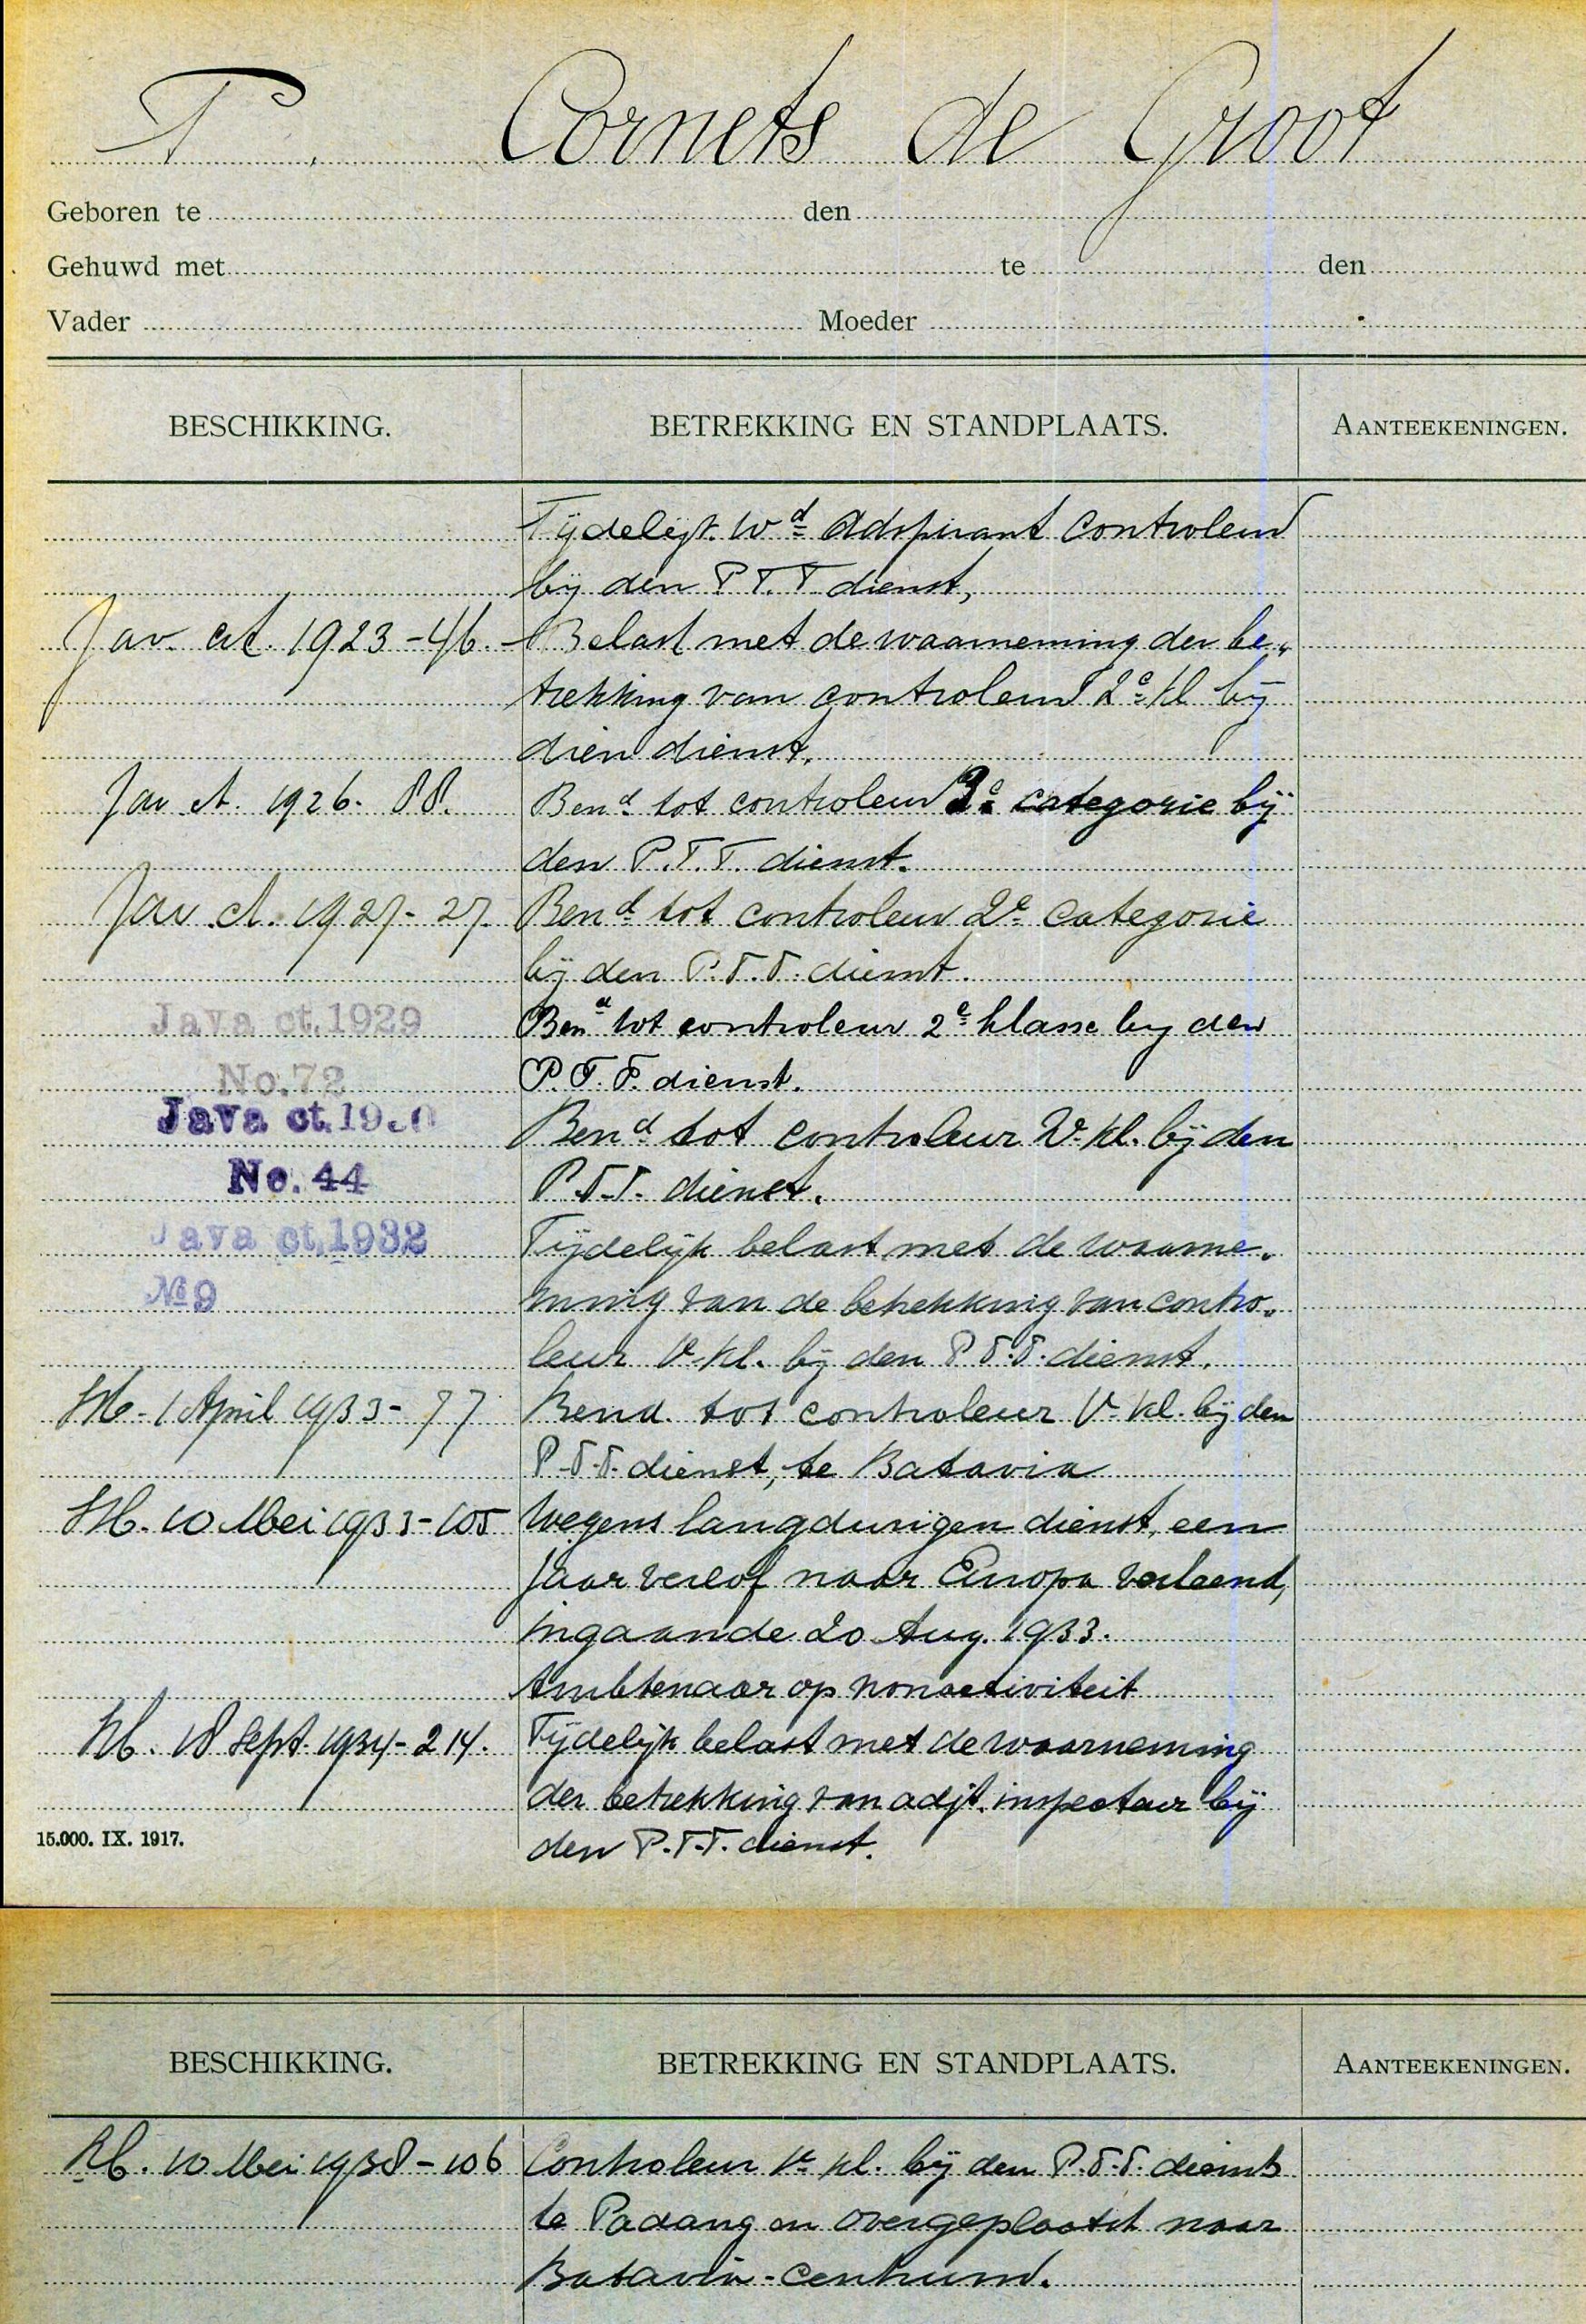 T. Cornets de Groot
Geboren te den
Gehuwd met te den
Vader Moeder
BESCHIKKING. BETREKKING EN STANDPLAATS. AANTEEKENINGEN.
Tijdelijk wd adspirant controleur
bij den P.T.T dienst,
Jav. ct. 1923-46. Belast met de waarneming der be„
trekking van controleur 2e kl bij
dien dienst.
Jav ct. 1926-88. Bend tot controleur 3e categorie bij
den P.T.T. dienst.
Jav. ct. 1927-27. Bend tot controleur 2e categorie
bij den P.T.T. dienst.
Java ct.1929 Bend tot controleur 2e klasse bij den
No.72 P.T.T. dienst.
Java ct.1930 Bend tot controleur 2e kl. bij den
No. 44 P.T.T. dienst.
Java ct.1932 Tijdelijk belast met de waarne„
№9 ming van de betrekking van contro„
leur 1e kl. bij den P.T.T. dienst.
Hb. 1 April 1933-77 Bend. tot controleur 1e kl. bij den
P.T.T. dienst, te Batavia
Hb. 10 Mei 1933-105 Wegens langdurigen dienst, een
jaar verlof naar Europa verleend,
ingaande 20 Aug. 1933.
Ambtenaar op nonactiviteit
Hb. 18 Sept. 1934-214. Tijdelijk belast met de waarneming
der betrekking van adjt. inspecteur bij
15.000. IX. 1917. den P.T.T. dienst.
BESCHIKKING. BETREKKING EN STANDPLAATS. AANTEEKENINGEN.
Hb. 10 Mei 1938-106 Controleur 1e kl. bij den P.T.T. dienst
te Padang en overgeplaatst naar
Batavia-Centrum.